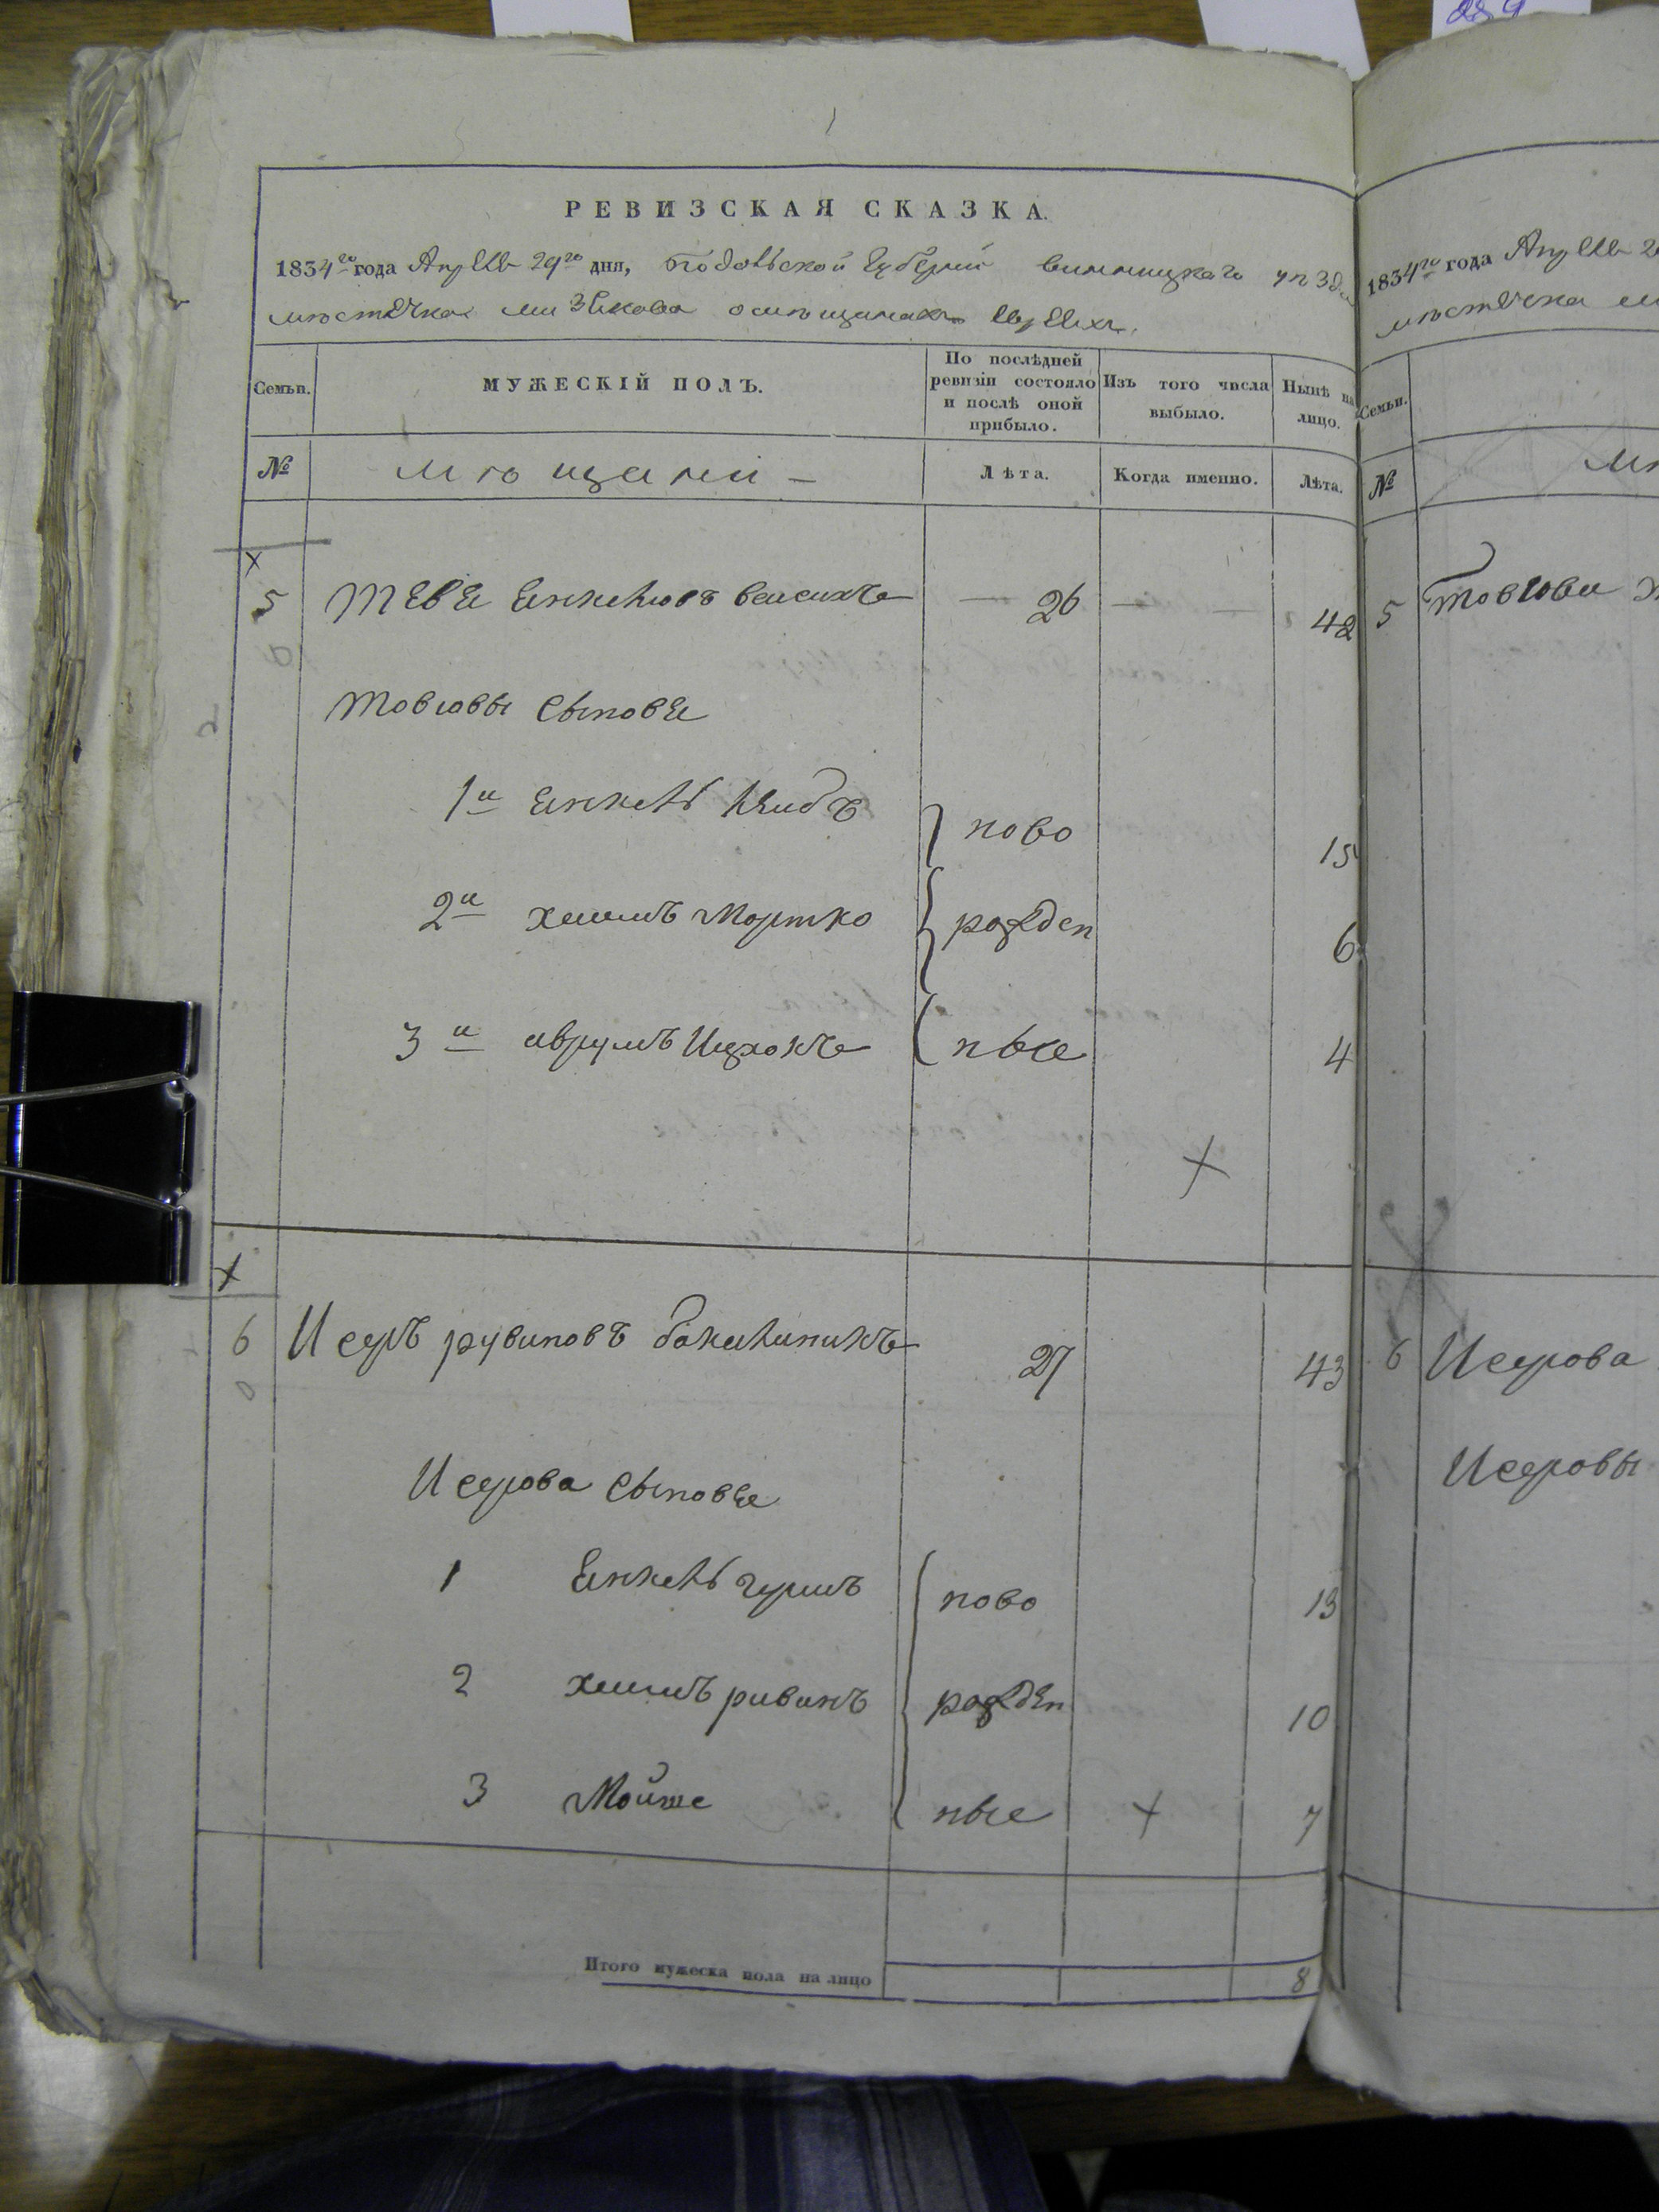 РЕВИЗСКАЯ СКАЗКА.
1834го года Апреля 29го дня, Подольской Губерніи винницкаго уѣзда
мѣстечка Мизякова о мѣщанахъ евреяхъ.
Семьи.
МУЖЕСКІЙ ПОЛЪ.
По послѣдней ревизіи состояло и послѣ оной прибыло.
Изъ того числа выбыло.
Нынѣ на лицо.
№
мѣщани
Лѣта.
Когда именно.
Лѣта.
5 Тевел Янкелювъ 26 42
Товювы сыновья
1й Янкель Лейбъ ново 15
2й хаимъ Мортко рожден 6
3й аврумъ Ицхокъ ные 4
6 Исеръ рувиновъ бакалиникъ 27 43
Исерова сыновья
1 Янкель гершъ ново 13
2 хаимъ рувинъ рожден 10
3 Мойше ные 7
Итого мужеска пола на лицо 8
1834го года Апреля
мѣстечка
Семьи.
№
5 Товюва
6 Исерова
Исеровы